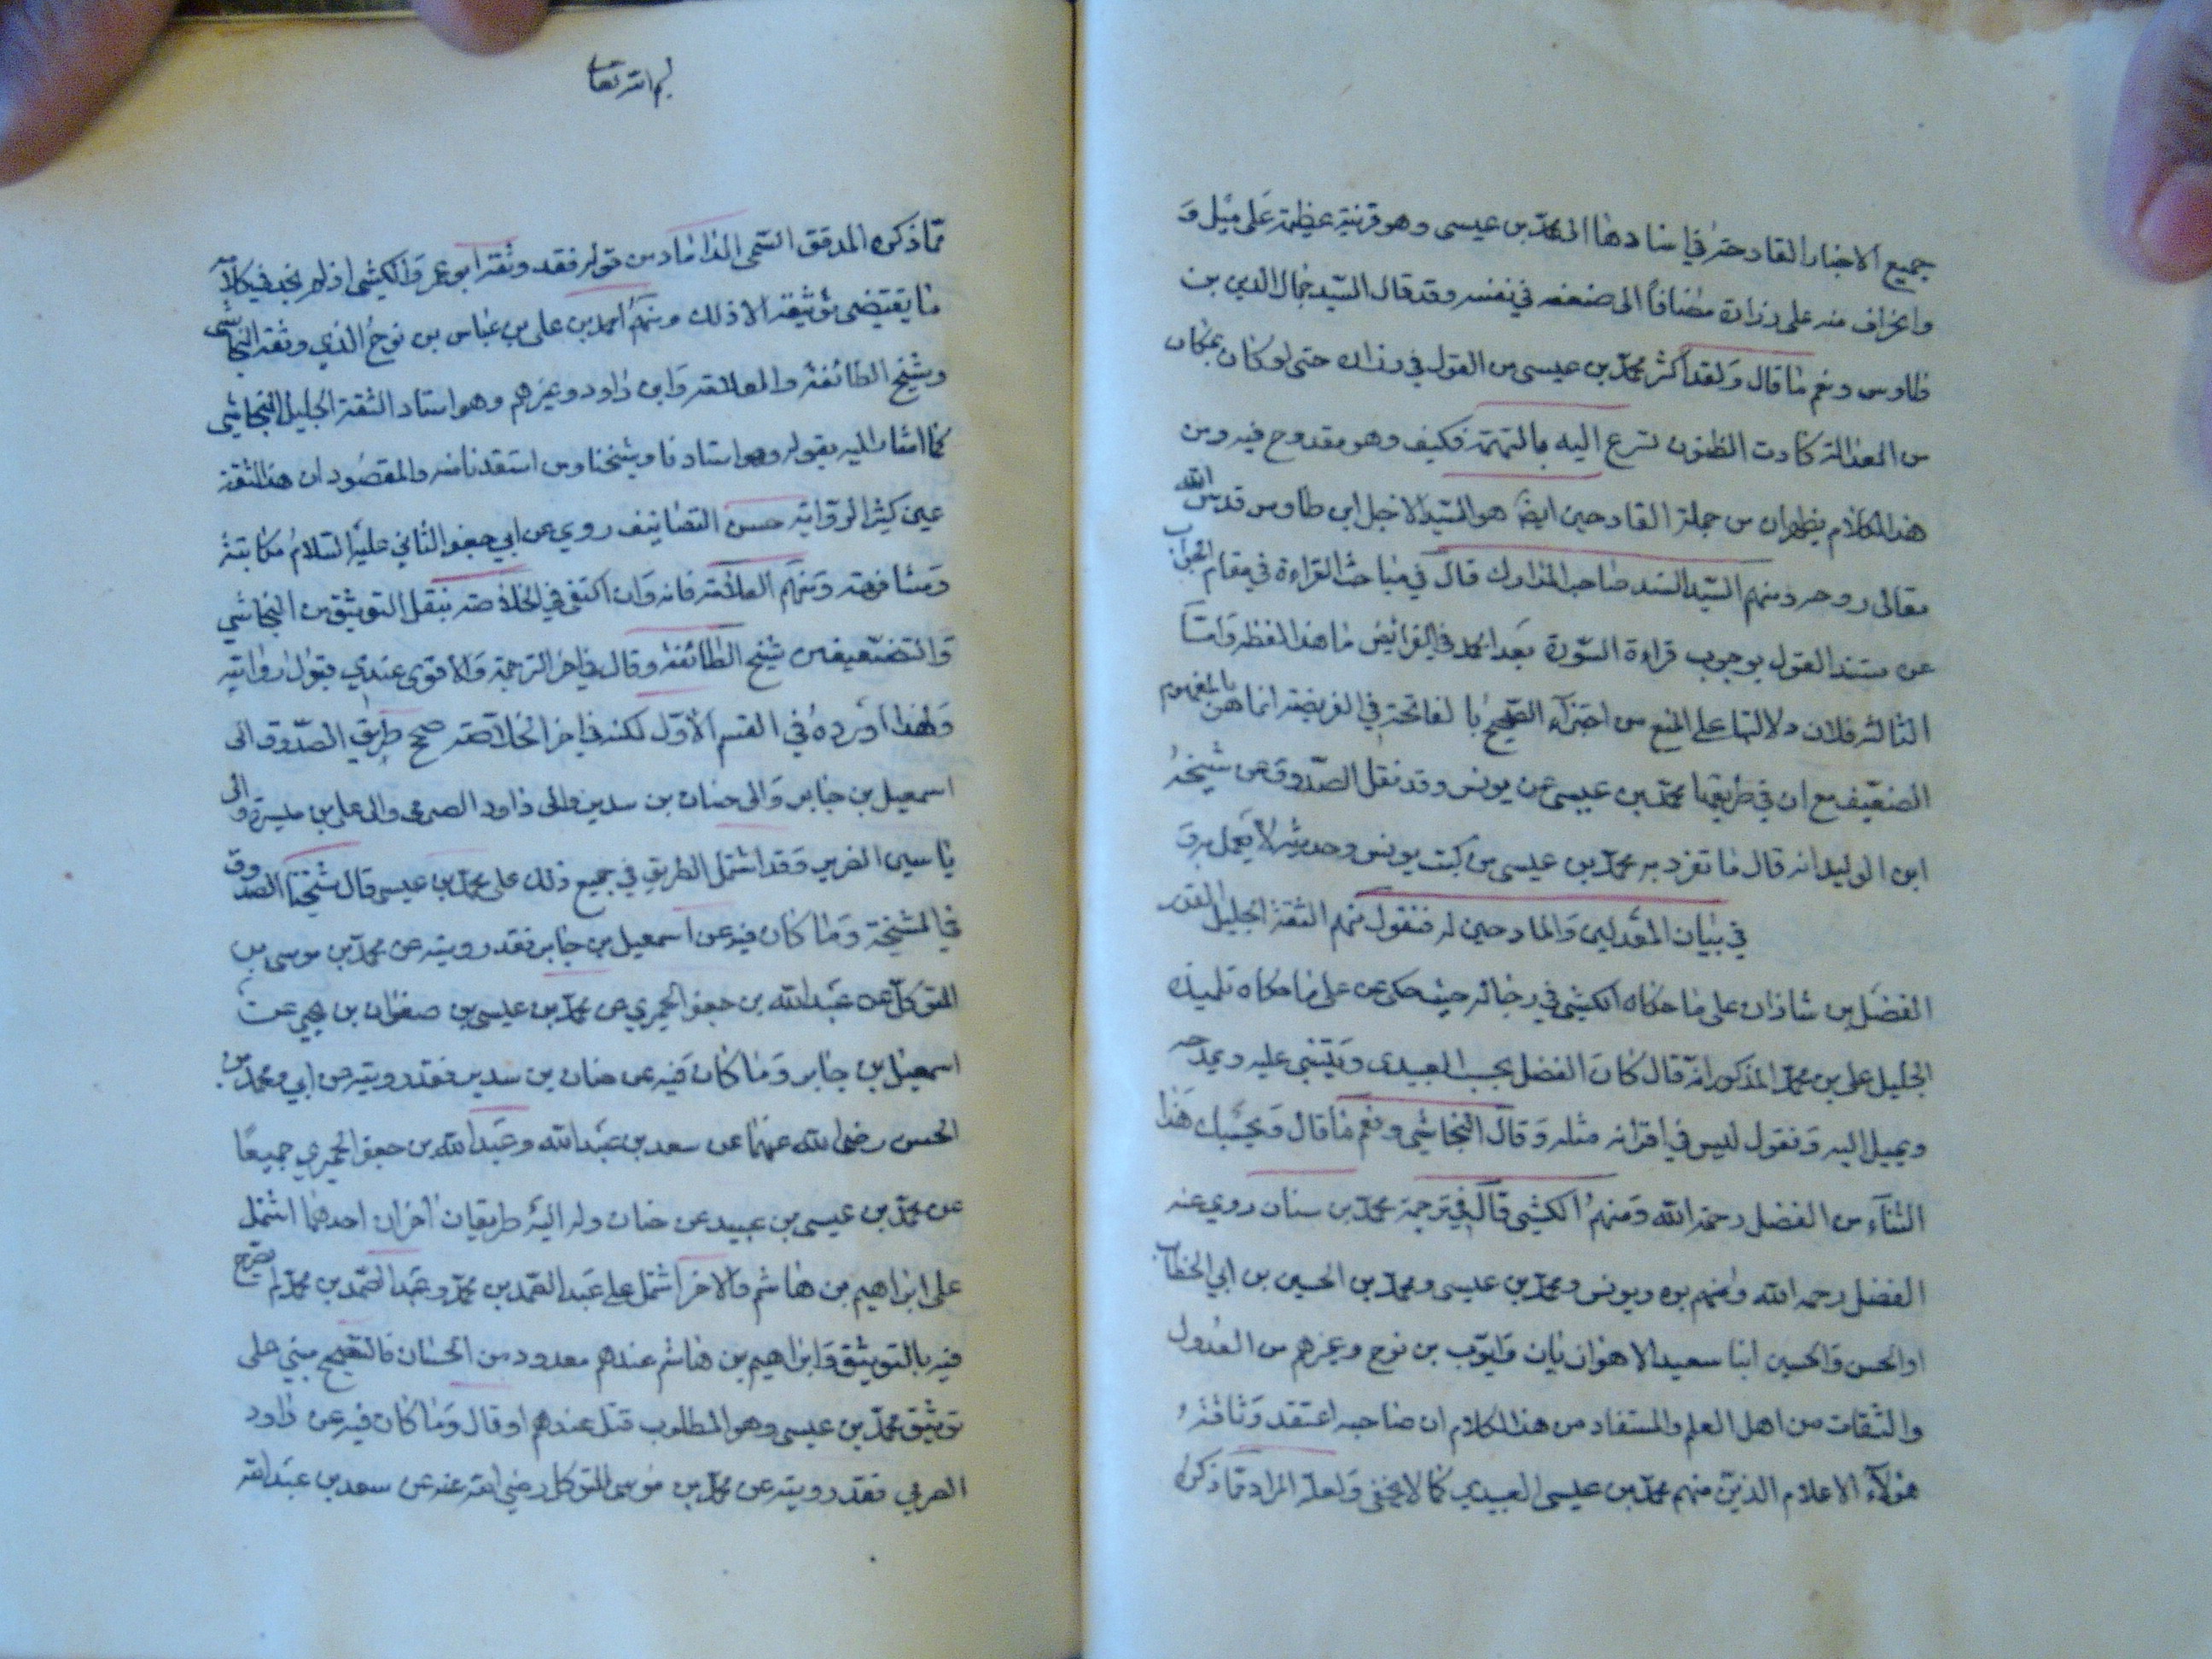 جميع الاخبار القادحة في اسنادها الى محمد بن عيسى وهو قرينة عظيمة على ميل و
وانحراف منه على زرارة مضافاً الى ضعفه في نفسه وقد قال السيد جمال الدين بن
طاوس ونعم ما قال ولقد اكثر محمد بن عيسى من القول في زرارة حتى لو كان بمكان
من العدالة كادت الظنون تسرع اليه بالتهمة فكيف وهو مقدوح فيه ومن
هذا الكلام يظهر ان من جملة القادحين ايضاً هو السيد الاجل ابن طاوس قدس الله
تعالى روحه ومنهم السيد السند صاحب المدارك قال في مباحث القراءة في مقام الجواب
عن مستند القول بوجوب قراءة السورة بعد الحمد في الفرائض ما هذا لفظه وامّا
الثالثة فلان دلالتها على المنع من اجتزآء الصحيح بالفاتحة في الفريضة انما هن بالمفهوم
الضعيف مع ان في طريقها محمد بن عيسى عن يونس وقد نقل الصدوق عن شيخه
ابن الوليد انه قال ما تفرد به محمد بن عيسى من كتب يونس وحديثه لا يعمل به و
في بيان المعدلين والمادحين له فنقول منهم الثقة الجليل القدر
الفضل بن شاذان على ما حكاه الكشي في رجاله حيث حكى عن على ما حكاه تلميذه
الجليل على بن محمد المذكور انه قال كان الفضل يحب العبيدى ويثنى عليه ويمدحه
ويميل اليه ونقول ليس في اقرانه مثله وقال النجاشي ونعم ما قال وبحسبك هذا
الثنآء من الفضل رحمة الله ومنهم الكشي قال في ترجمة محمد بن سنان روي عنه
الفضل رحمه الله وابوه ويونس ومحمد بن عيسى ومحمد بن الحسين بن ابي الخطاب
والحسن والحسين ابنا سعيد الاهوازيان وايوب بن نوح وغيرهم من العدول
والثقات من اهل العلم والمستفاد من هذا الكلام ان صاحبه اعتقد وثاقة
هؤلآء الاعلام الذين منهم محمد بن عيسى العبيدي كما لا يخفى ولعلّه المراد مما ذكره
بسم الله تعالى
مما ذكره المدقق السمى الداماد من قوله فقد وثقه ابو عمرو الكشي اذ لم نجد في كلامه
ما يقتضى توثيقه الا ذلك ومنهم احمد بن على بن عباس بن نوح الذي وثقه النجاشى
وشيخ الطائفة والعلامة وابن داود وغيرهم وهو استاد الثقة الجليل النجاشي
كما اشار اليه بقوله وهو استادنا وشيخنا ومن استفدنا منه والمقصود ان هذا الثقة
عين كثير الرواية حسن التصانيف روي عن ابي جعفر الثاني عليه السلام مكاتبة
ومشافهة ومنهم العلامة فانه وان اكتفى في الخلاصة بنقل التوثيق من النجاشي
والتضعيف من شيخ الطائفة وقال في اخر الترجمة والاقوى عندي قبول روايته
ولهذا اورده في القسم الاول لكنه في اخر الخلاصة صحح طريق الصدوق الى
اسمعيل بن جابر والى حنان بن سدير والى داود الصرمى والى على بن ميسرة والى
ياسين الضرير وقد اشتمل الطريق في جميع ذلك على محمد بن عيسى قال شيخنا الصدوق
في المشيخة وما كان فيه عن اسمعيل بن جابر فقد رويته عن محمد بن موسى بن
المتوكل عن عبد الله بن جعفر الحميري عن محمد بن عيسى بن صفوان بن يحيى عن
اسمعيل بن جابر وما كان فيه عن حنان بن سدير فقد رويته عن ابي ومحمد بن
الحسن رضى الله عنهما عن سعد بن عبد الله وعبد الله بن جعفر الحميري جميعًا
عن محمد بن عيسى بن عبيد عن حنان وله اليه طريقان اخران احدهما اشتمل
على ابراهيم بن هاشم والاخر اشتمل على عبد الصمد بن محمد وعبد الصمد بن محمد لم يصرح
فيه بالتوثيق وابراهيم بن هاشم عندهم معدود من الحسان فالتصحيح مبني على
توثيق محمد بن عيسى وهو المطلوب قتل عندهم او قال وما كان فيه عن داود
الصرمي فقد رويته عن محمد بن موسى المتوكل رضي الله عنه عن سعد بن عبد الله